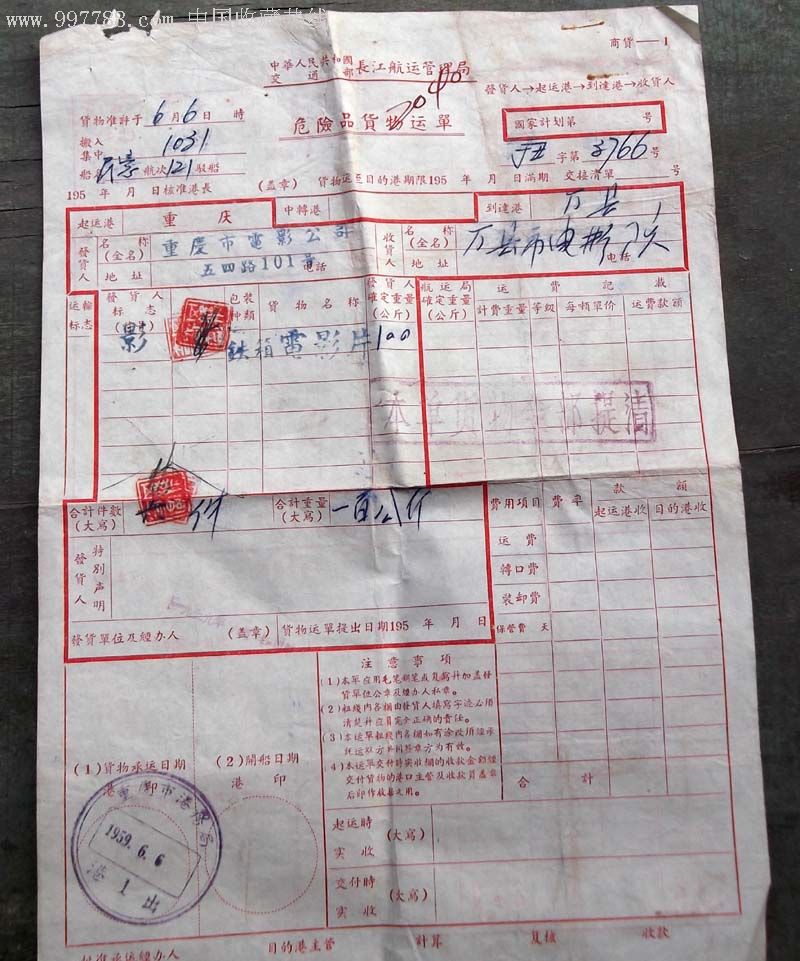 www.997788.com 中国收藏热线
商貨—1
中華人民共和國
交通部 長江航运管理局
發貨人→起运港→到達港→收貨人
2040
危險品貨物运單
國家計划第 号
字第3766号
貨物准許于6月6日 時
搬入
集中 1031
船 航次121駁船
195 年 月 日核准港長 (盖章) 貨物运至目的港期限195 年 月 日滿期 交接清單
起运港 重庆 中轉港 到達港 万县
發貨人 名称(全名) 重慶市電影公司
地址 五四路101号 電話
收貨人 名称(全名) 万县市电影院
地址 電話
运輸标志 發貨人标志(單) 包裝种類 貨物名称 發貨人確定重量(公斤) 航运局確定重量(公斤) 运費記載
計費重量 等級 每噸單价 运費款額
影 鉄箱 電影片 100
本单货物全部提清
合計件數(大寫) 件 合計重量(大寫) 一百公斤
發貨人特別声明
發貨單位及經办人 (蓋章) 貨物运單提出日期195 年 月 日
費用項目 費率 款額
起运港收 目的港收
运費
轉口費
裝卸費
保管費 天
合計
注意事項
(1)本單应用毛笔鋼笔或复寫并加盖發
貨單位公章及經办人私章。
(2)粗綫内各欄由發貨人填寫字迹必須
清楚并应負完全正确的責任。
(3)本运單粗綫内各欄如有涂改須經承
托运双方共同盖章方为有效。
(4)本运單交付時实收欄的收款金額經
交付貨物的港口主管及收款員盖章
后即作收据之用。
(1)貨物承运日期
港 印
(2)開船日期
港 印
重慶市港务局
1959.6.6
港1出
起运時
实收 (大寫)
交付時
实收 (大寫)
批准承运經办人 目的港主管 計算 复核 收款